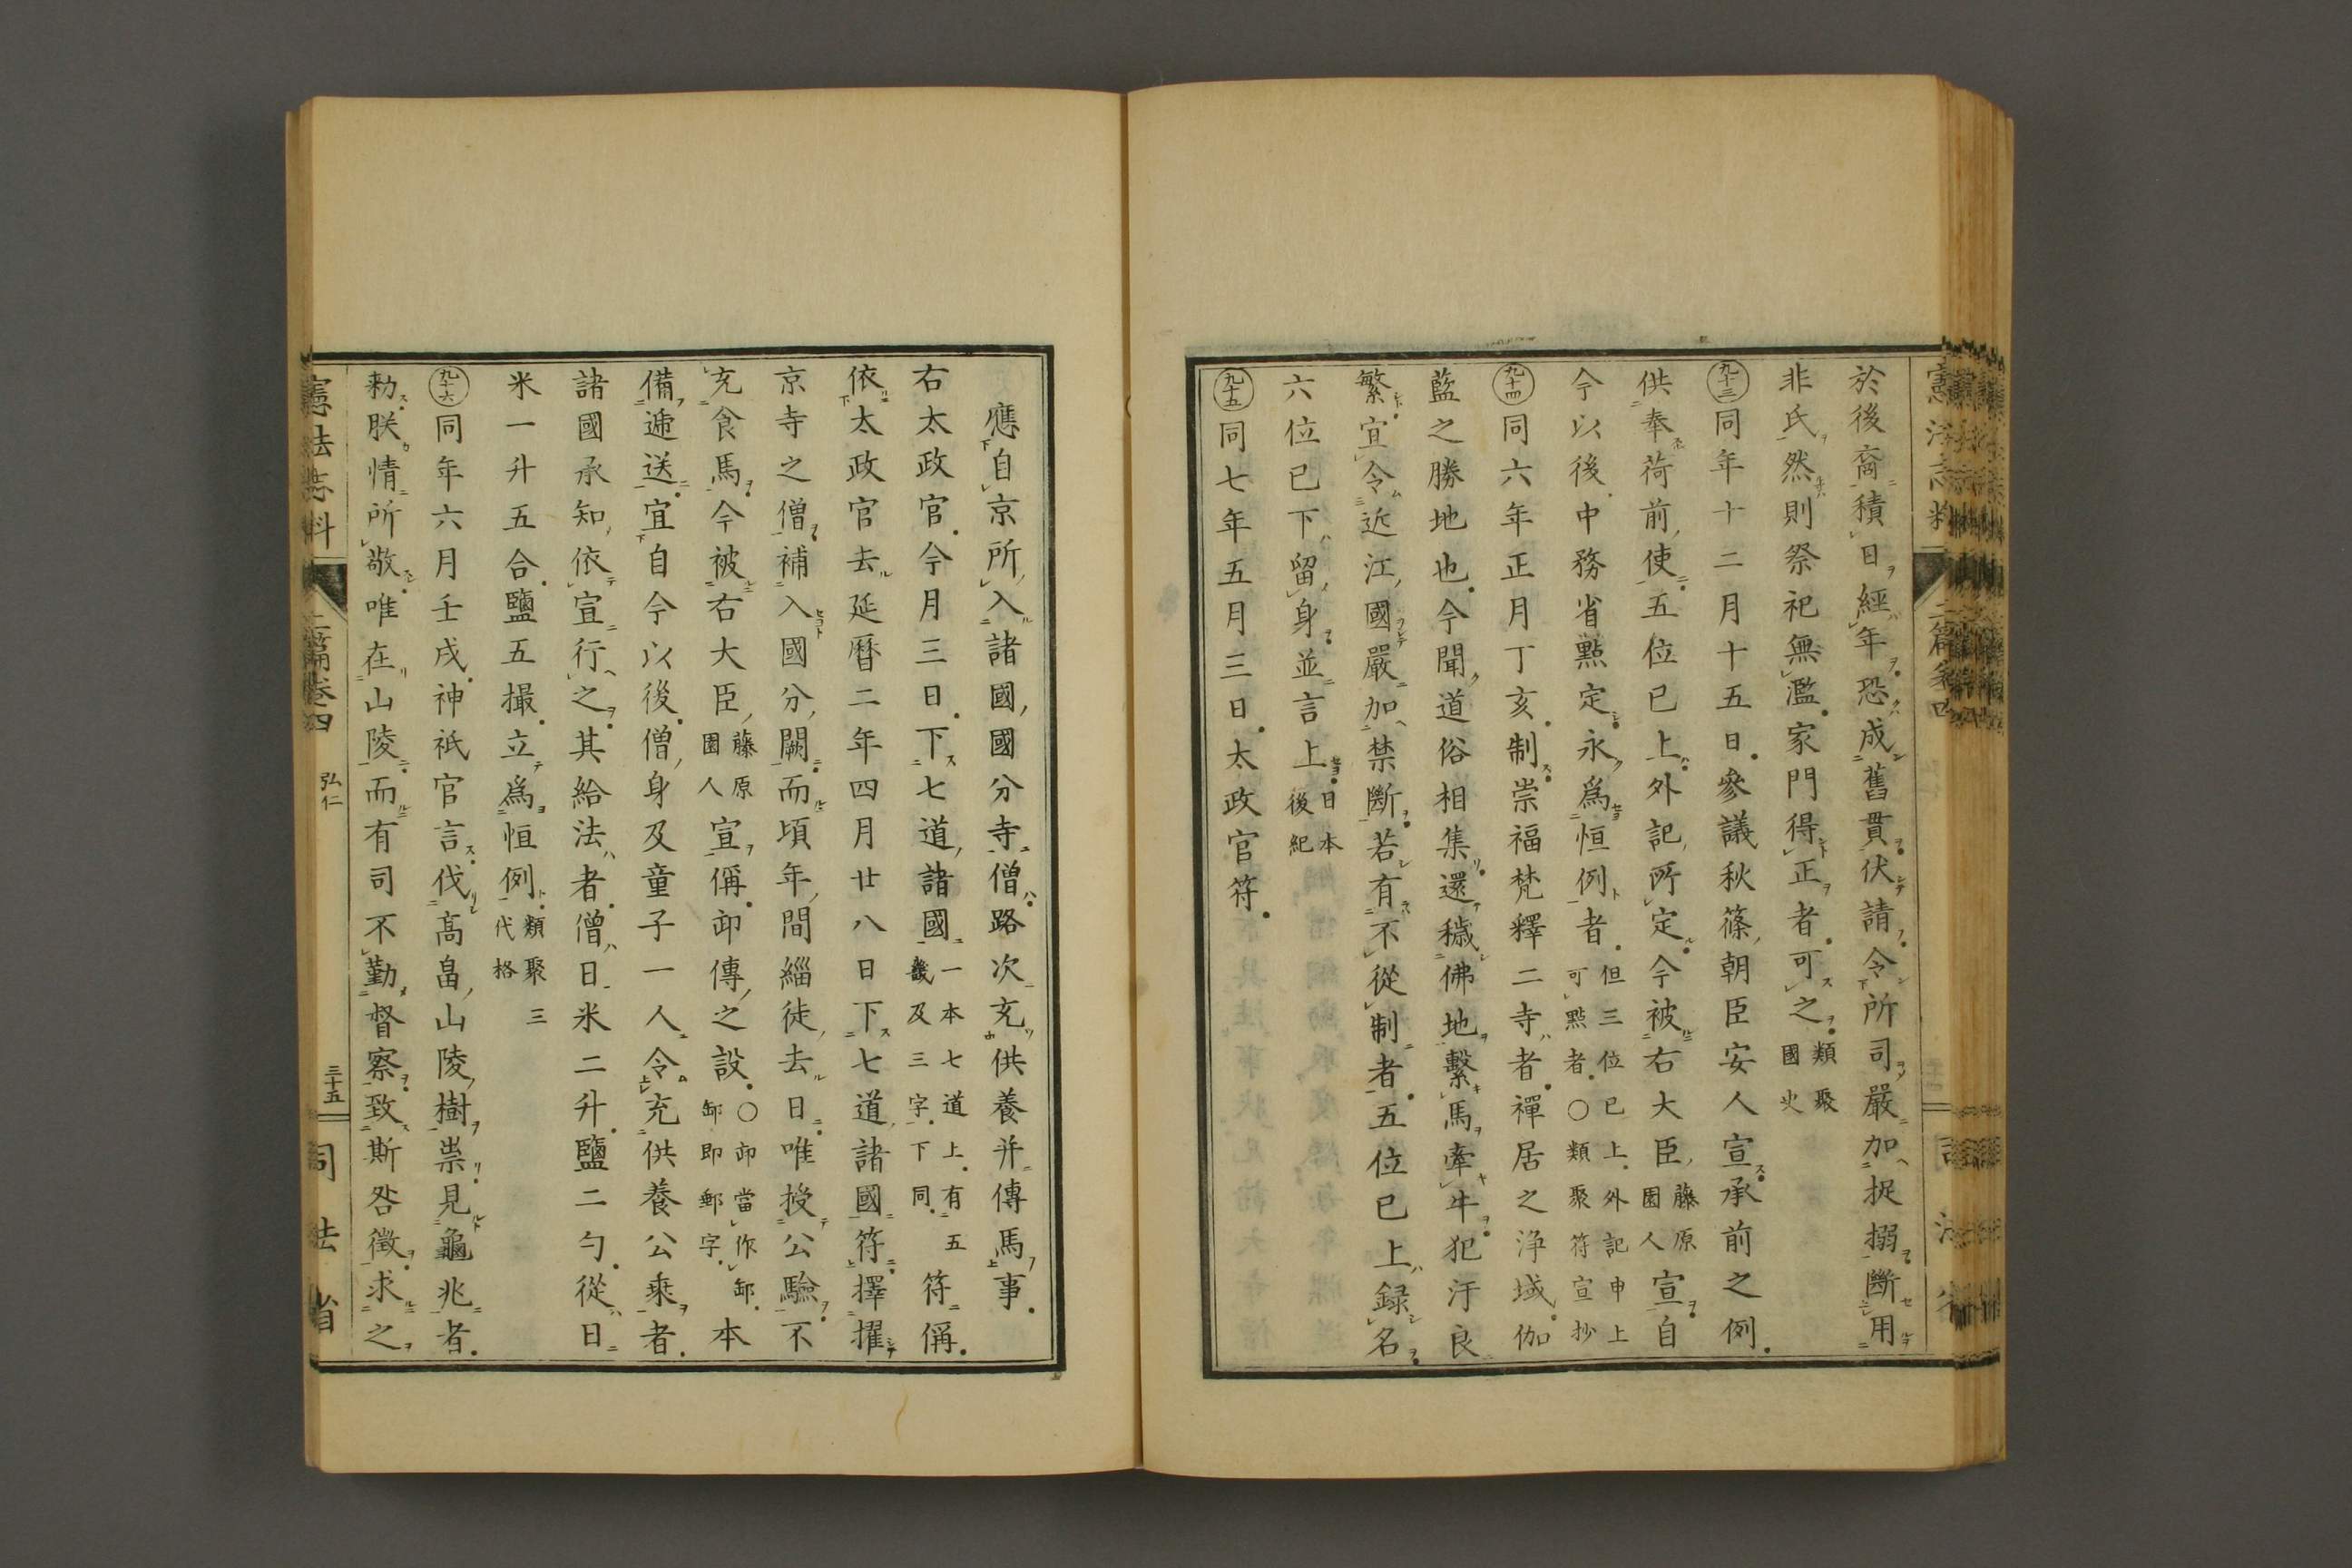 於後裔積日經年恐成舊貫伏請令所司嚴加捉搦斷用
非氏然則祭祀無濫家門得正者可之類聚國史
九十三同年十二月十五日參議秋篠朝臣安人宣承前之例
供奉荷前使五位已上外記所定今被右大臣藤原園人宣自
今以後中務省點定永爲恒例者但三位已上外記申上可點者○類聚符宣抄
九十四同六年正月丁亥制崇福梵釋二寺者禪居之淨域伽
藍之勝地也今聞道俗相集還穢佛地繫馬牽牛犯汙良
繁宜令近江國嚴加禁斷若有不從制者五位已上録名
六位已下留身並言上日本後紀
九十五同七年五月三日太政官符
應自京所入諸國國分寺僧路次充供養并傳馬事
右太政官今月三日下七道諸國一本七道上有五畿及三字下同符偁
依太政官去延曆二年四月廿八日下七道諸國符擇擢
京寺之僧補入國分闕而頃年間緇徒去日唯授公驗不
充食馬今被右大臣藤原園人宣偁卸傳之設○卸當作卸卸即郵字本
備遞送宜自今以後僧身及童子一人令充供養公乘者
諸國承知依宣行之其給法者僧日米二升鹽二勺從日
米一升五合鹽五撮立爲恒例類聚三代格
九十六同年六月壬戌神祇官言伐高畠山陵樹祟見龜兆者
勅朕情所敬唯在山陵而有司不勤督察致斯咎徵求之
憲法志料 二篇卷四 弘仁 三十五 司法省